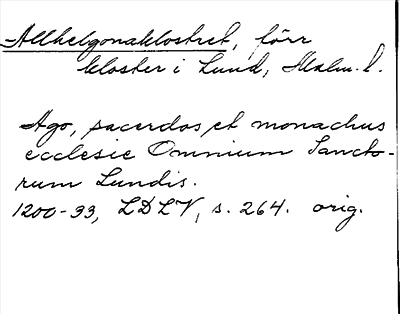 Allhelgonaklostret, förr
kloster i Lund, Malm. l.
Ago, sacerdos et monachus
ecclesie Omnium Sancto-
rum Lundis.
1200-33, LDLV, s. 264. orig.